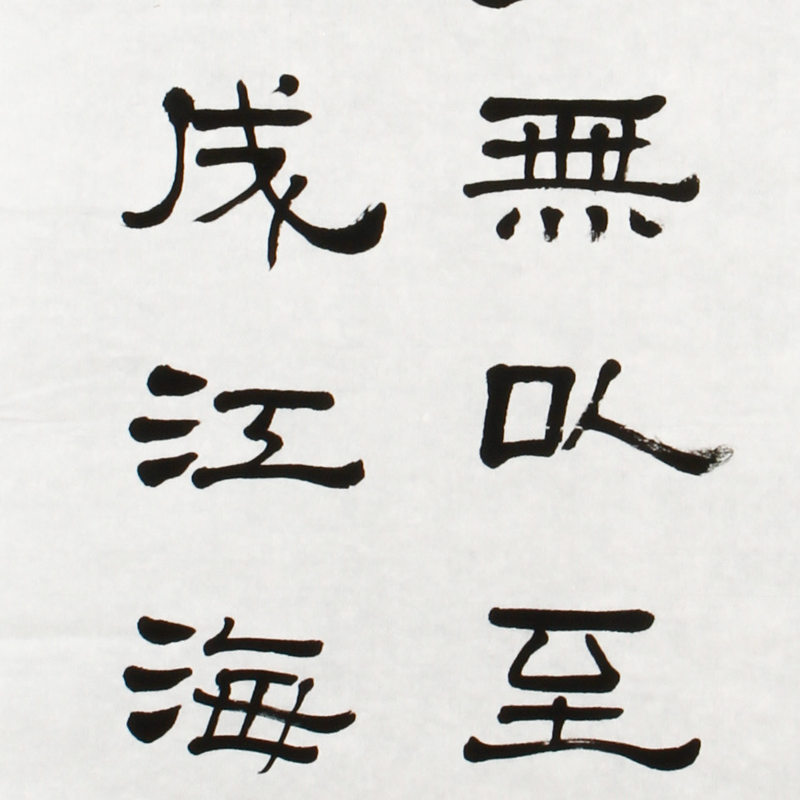 無以至
成江海